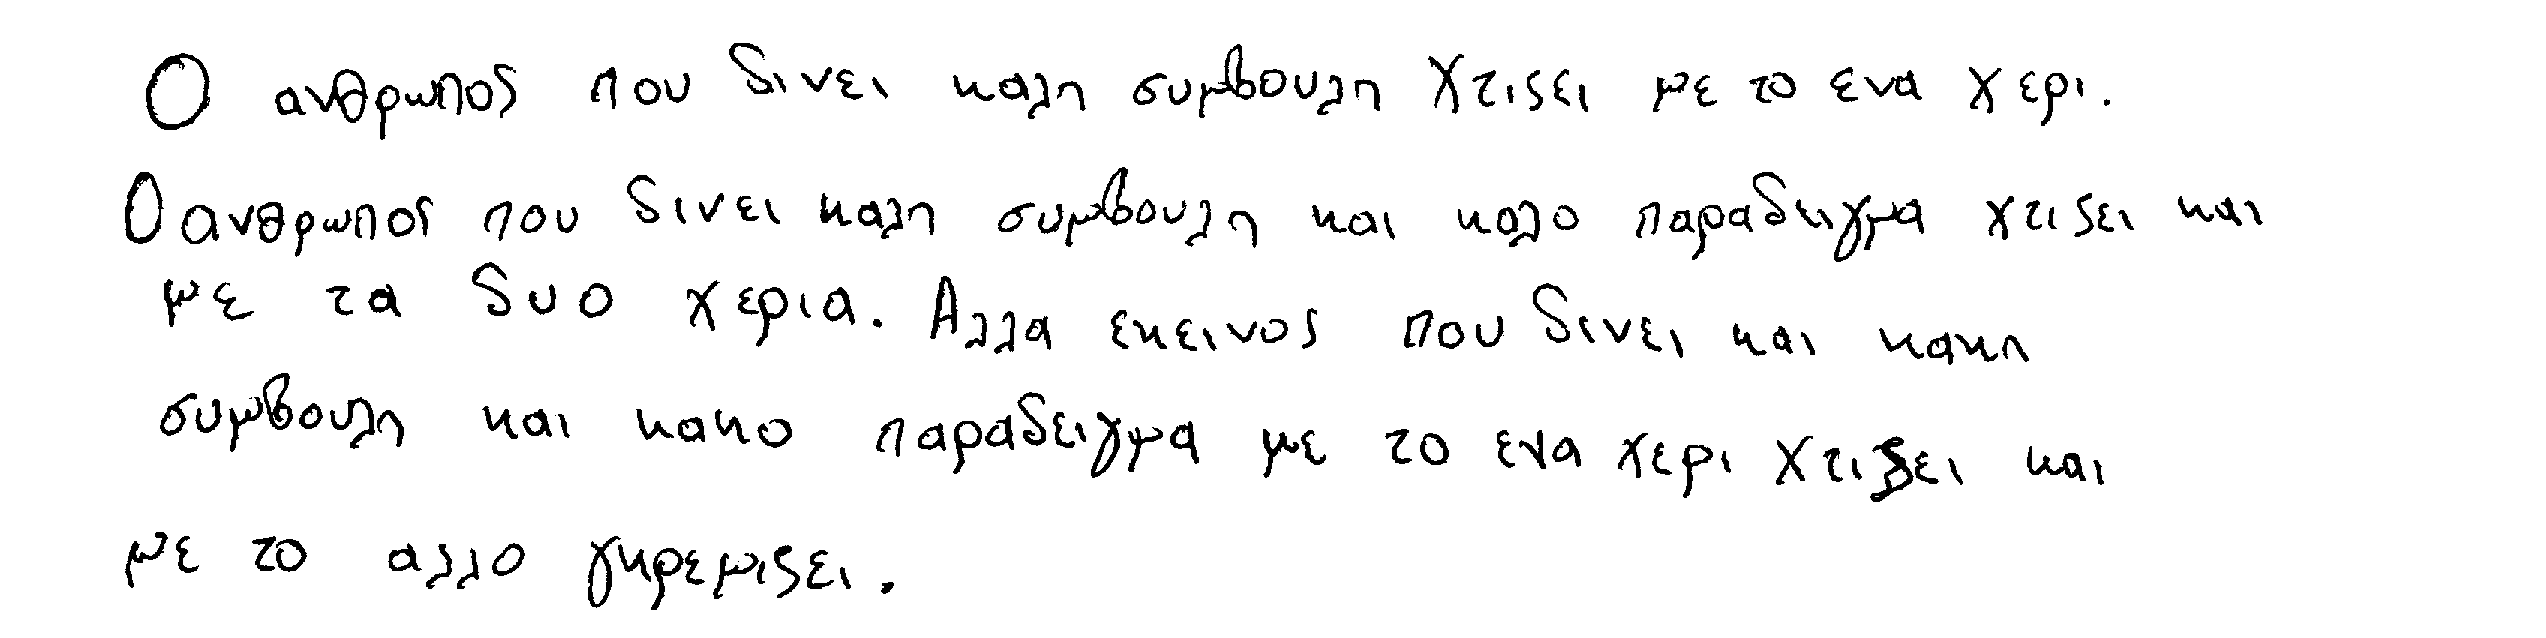 Ο ανθρωπος που δινει καλη συμβουλη χτιζει με το ενα χερι.
Ο ανθρωπος που δινει καλη συμβουλη και καλο παραδειγμα χτιζει και
με τα δυο χερια. Αλλα εκεινος που δινει και κακη
συμβουλη και κακο παραδειγμα με το ενα χερι χτιζει και
με το αλλο γκρεμιζει.